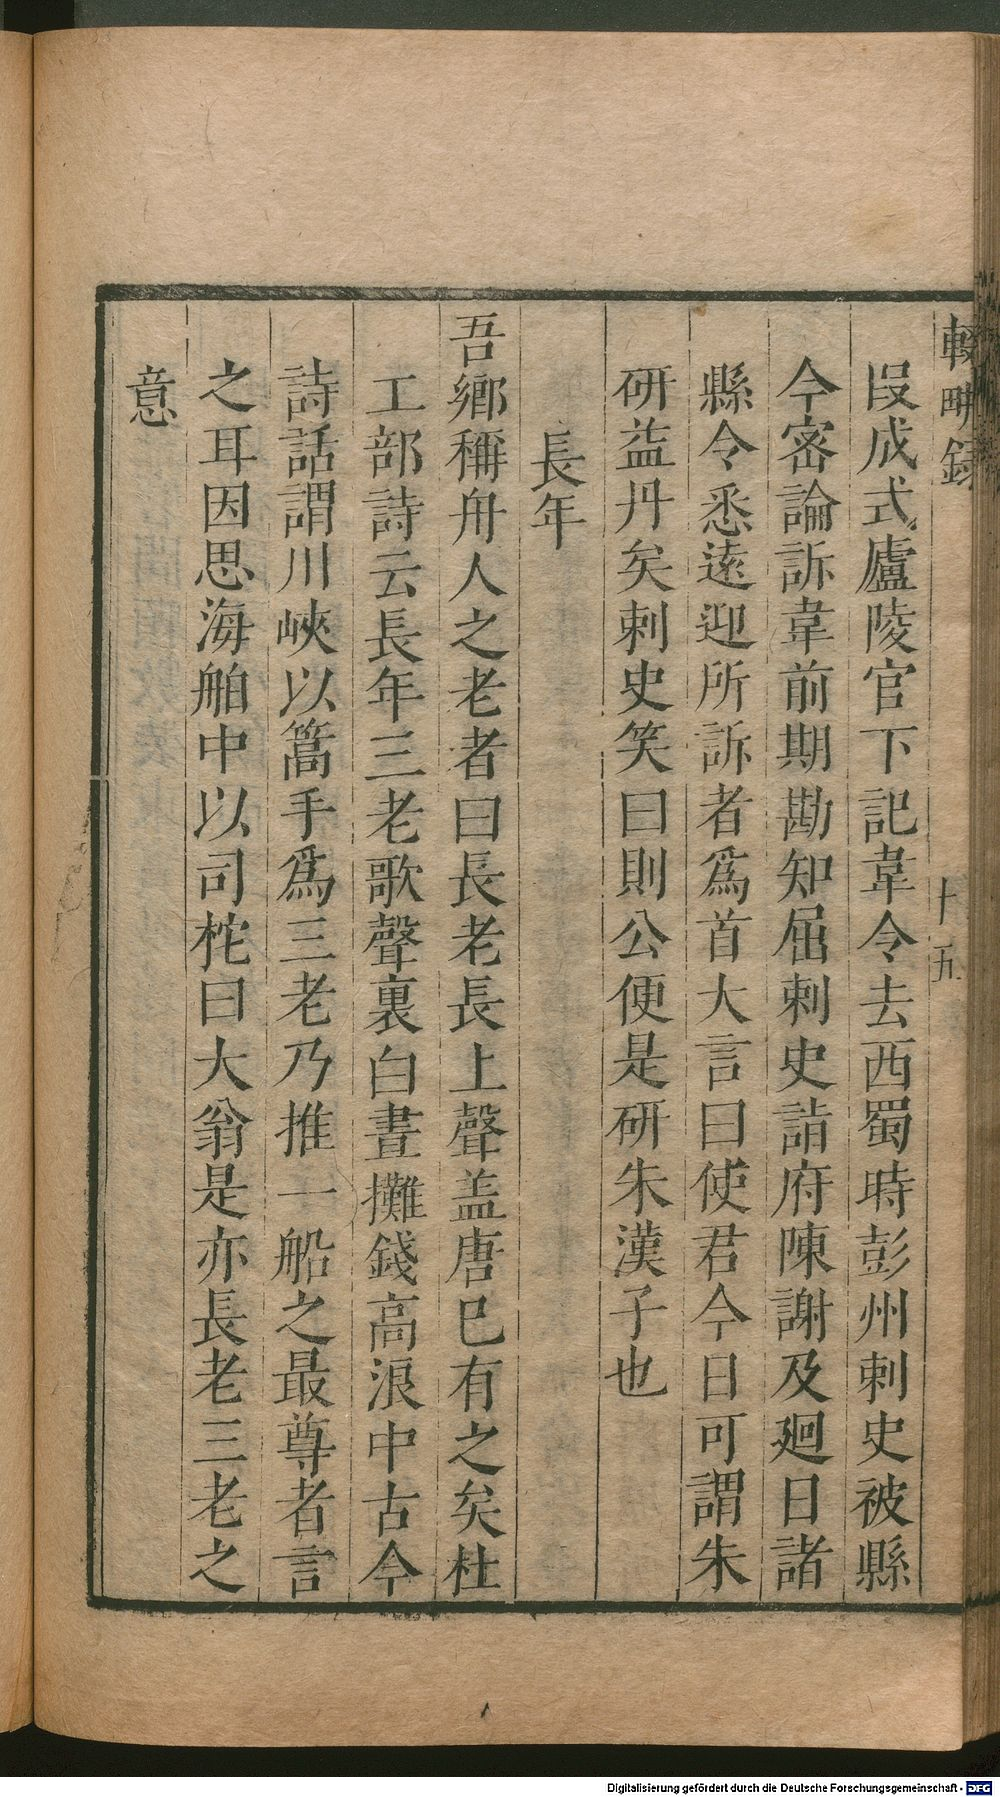 輟畊錄
十五
段成式廬陵官下記韋令去西蜀時彭州刺史被縣
令密論訴韋前期勘知屈刺史詣府陳謝及廻日諸
縣令悉遠迎所訴者爲首大言曰使君今日可謂朱
研益丹矣刺史笑曰則公便是研朱漢子也
長年
吾鄉稱舟人之老者曰長老長上聲盖唐已有之矣杜
工部詩云長年三老歌聲裏白晝攤錢高浪中古今
詩話謂川峽以篙手爲三老乃推一船之最尊者言
之耳因思海舶中以司柁曰大翁是亦長老三老之
意
Digitalisierung gefördert durch die Deutsche Forschungsgemeinschaft - DFG